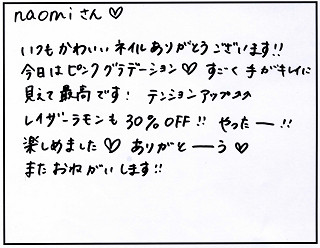 naomiさん♡
いつもかわいいネイルありがとうございます!!
今日はピンクグラデーション♡ すごく手がキレイに
見えて最高です! テンションアップココ
レイザーラモンも30%OFF!! やったー!!
楽しめました♡ ありがとーう♡
またおねがいします!!